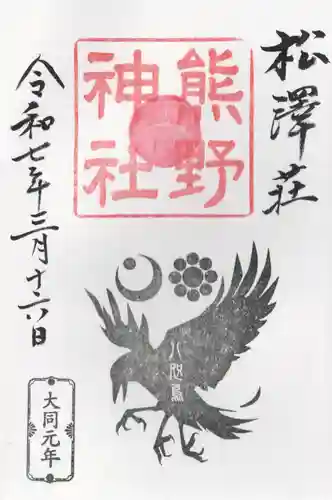 松澤荘
熊野
神社
令和七年三月十六日
八咫烏
大同元年